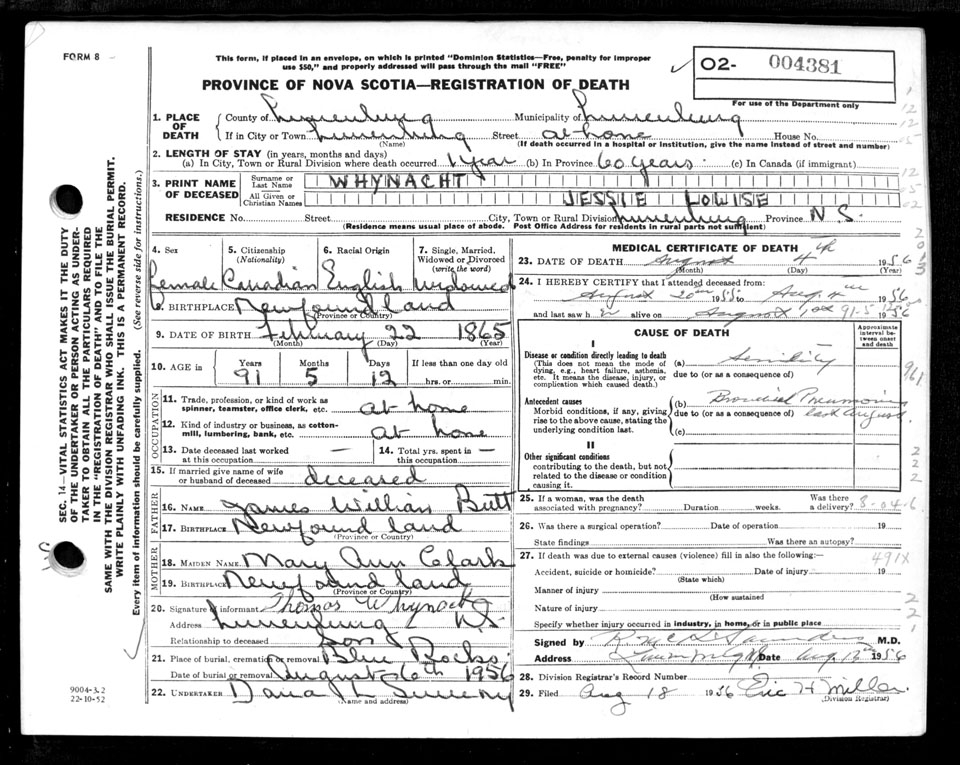 FORM 8
This form, if placed in an envelope, on which is printed "Dominion Statistics—Free, penalty for improper
use $50," and properly addressed will pass through the mail "FREE"
PROVINCE OF NOVA SCOTIA—REGISTRATION OF DEATH
O2- 004381
For use of the Department only
1. PLACE OF DEATH
County of Lunenburg Municipality of Lunenburg
If in City or Town Lunenburg Street at home House No.
(Name) (If death occurred in a hospital or institution, give the name instead of street and number)
2. LENGTH OF STAY (in years, months and days)
(a) In City, Town or Rural Division where death occurred 1 year (b) In Province 60 years (c) In Canada (if immigrant)
3. PRINT NAME OF DECEASED
Surname or Last Name WHYNACHT
All Given or Christian Names JESSIE LOWISE
RESIDENCE No. Street City, Town or Rural Division Lunenburg Province N S.
(Residence means usual place of abode. Post Office Address for residents in rural parts not sufficient)
4. SEX 5. Citizenship (Nationality) 6. Racial Origin 7. Single, Married, Widowed or Divorced (write the word)
Female Canadian English Widowed
8. BIRTHPLACE Newfoundland
(Province or Country)
9. DATE OF BIRTH February 22 1865
(Month) (Day) (Year)
10. AGE in Years Months Days If less than one day old
91 5 12 hrs. or min.
OCCUPATION
11. Trade, profession, or kind of work as
spinner, teamster, office clerk, etc. at home
12. Kind of industry or business, as cotton-
mill, lumbering, bank, etc. at home
13. Date deceased last worked at this occupation — 14. Total yrs. spent in this occupation —
15. If married give name of wife
or husband of deceased deceased
FATHER
16. NAME James William Butt
17. BIRTHPLACE Newfoundland
(Province or Country)
MOTHER
18. MAIDEN NAME Mary Ann
19. BIRTHPLACE Newfoundland
(Province or Country)
20. Signature of informant Thomas Whynacht
Address Lunenburg N.S.
Relationship to deceased Son
21. Place of burial, cremation or removal Blue Rocks
Date of burial or removal August 6th 1956
22. UNDERTAKER Dana L Sweeny
(Name and address)
MEDICAL CERTIFICATE OF DEATH
23. DATE OF DEATH August 4th 1956
(Month) (Day) (Year)
24. I HEREBY CERTIFY that I attended deceased from:
August 20th 1955 to Aug. 4th 1956
and last saw h alive on August 1st 1956
91-5
CAUSE OF DEATH
Approximate interval between onset and death
I
Disease or condition directly leading to death
(This does not mean the mode of
dying, e.g., heart failure, asthenia,
etc. It means the disease, injury, or
complication which caused death.)
(a) Senility
due to (or as a consequence of)
Antecedent causes
Morbid conditions, if any, giving
rise to the above cause, stating the
underlying condition last.
(b) Bronchial Pneumonia
due to (or as a consequence of) last August
(c)
II
Other significant conditions
contributing to the death, but not
related to the disease or condition
causing it.
25. If a woman, was the death
associated with pregnancy? Duration weeks. Was there a delivery? 8-04-6
26. Was there a surgical operation? Date of operation 19
State findings Was there an autopsy?
27. If death was due to external causes (violence) fill in also the following:— 491X
Accident, suicide or homicide? Date of injury 19
(State which)
Manner of injury
(How sustained
Nature of injury
Specify whether injury occurred in industry, in home, or in public place
Signed by Saunders M.D.
Address Lunenburg Date Aug. 13th 1956
28. Division Registrar's Record Number
29. Filed Aug 18 1956 Eric H Miller
(Division Registrar)
SEC. 14—VITAL STATISTICS ACT MAKES IT THE DUTY
OF THE UNDERTAKER OR PERSON ACTING AS UNDER-
TAKER TO OBTAIN ALL THE PARTICULARS REQUIRED
IN THE "REGISTRATION OF DEATH" AND TO FILE THE
SAME WITH THE DIVISION REGISTRAR WHO SHALL ISSUE THE BURIAL PERMIT.
WRITE PLAINLY WITH UNFADING INK. THIS IS A PERMANENT RECORD.
Every item of information should be carefully supplied. (See reverse side for instructions.)
9004-3.2
22-10-52